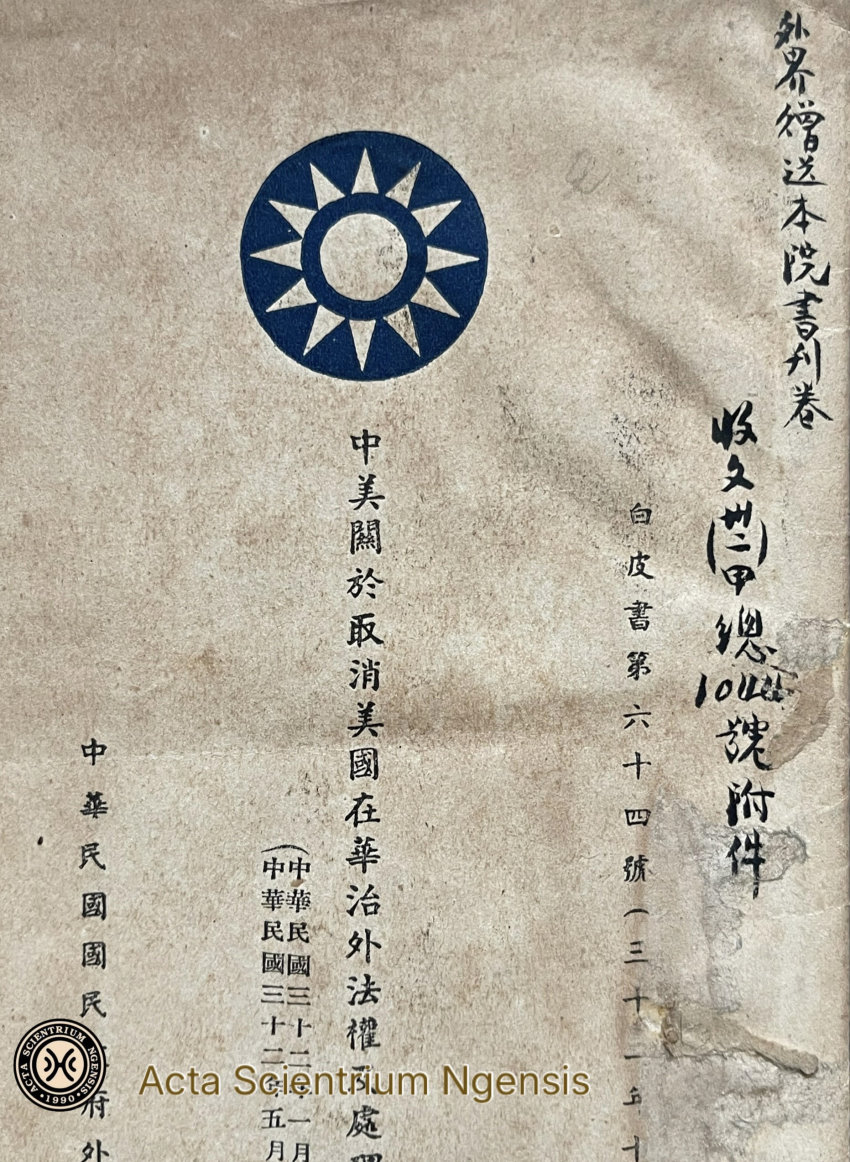 外界贈送本院書刊卷
收文(卅二)甲總號附件
白皮書第六十四號(三十
中美關於取消美國在華治外法權及處
(中華民國三十二年一月
中華民國三十二年五月
中華民國國民府外
ACTA SCIENTRIUM NGENSIS
1990
Acta Scientrium Ngensis